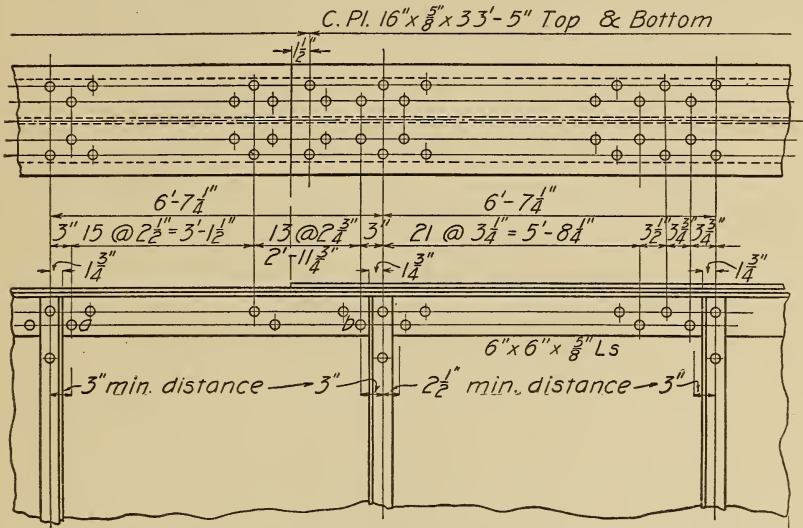 C. Pl. 16" x 5/8" x 33'-5" Top & Bottom
1 1/2"
6'-7 1/4" 6'-7 1/4"
3" 15 @ 2 1/2" = 3'-1 1/2" 13 @ 2 3/4" 3" 21 @ 3 1/4" = 5'-8 1/4" 3 1/2" 3 3/4" 3 3/4"
2'-11 3/4"
1 3/4" 1 3/4" 1 3/4"
a b
6" x 6" x 5/8" Ls
3" min. distance 3" 2 1/2" min. distance 3"